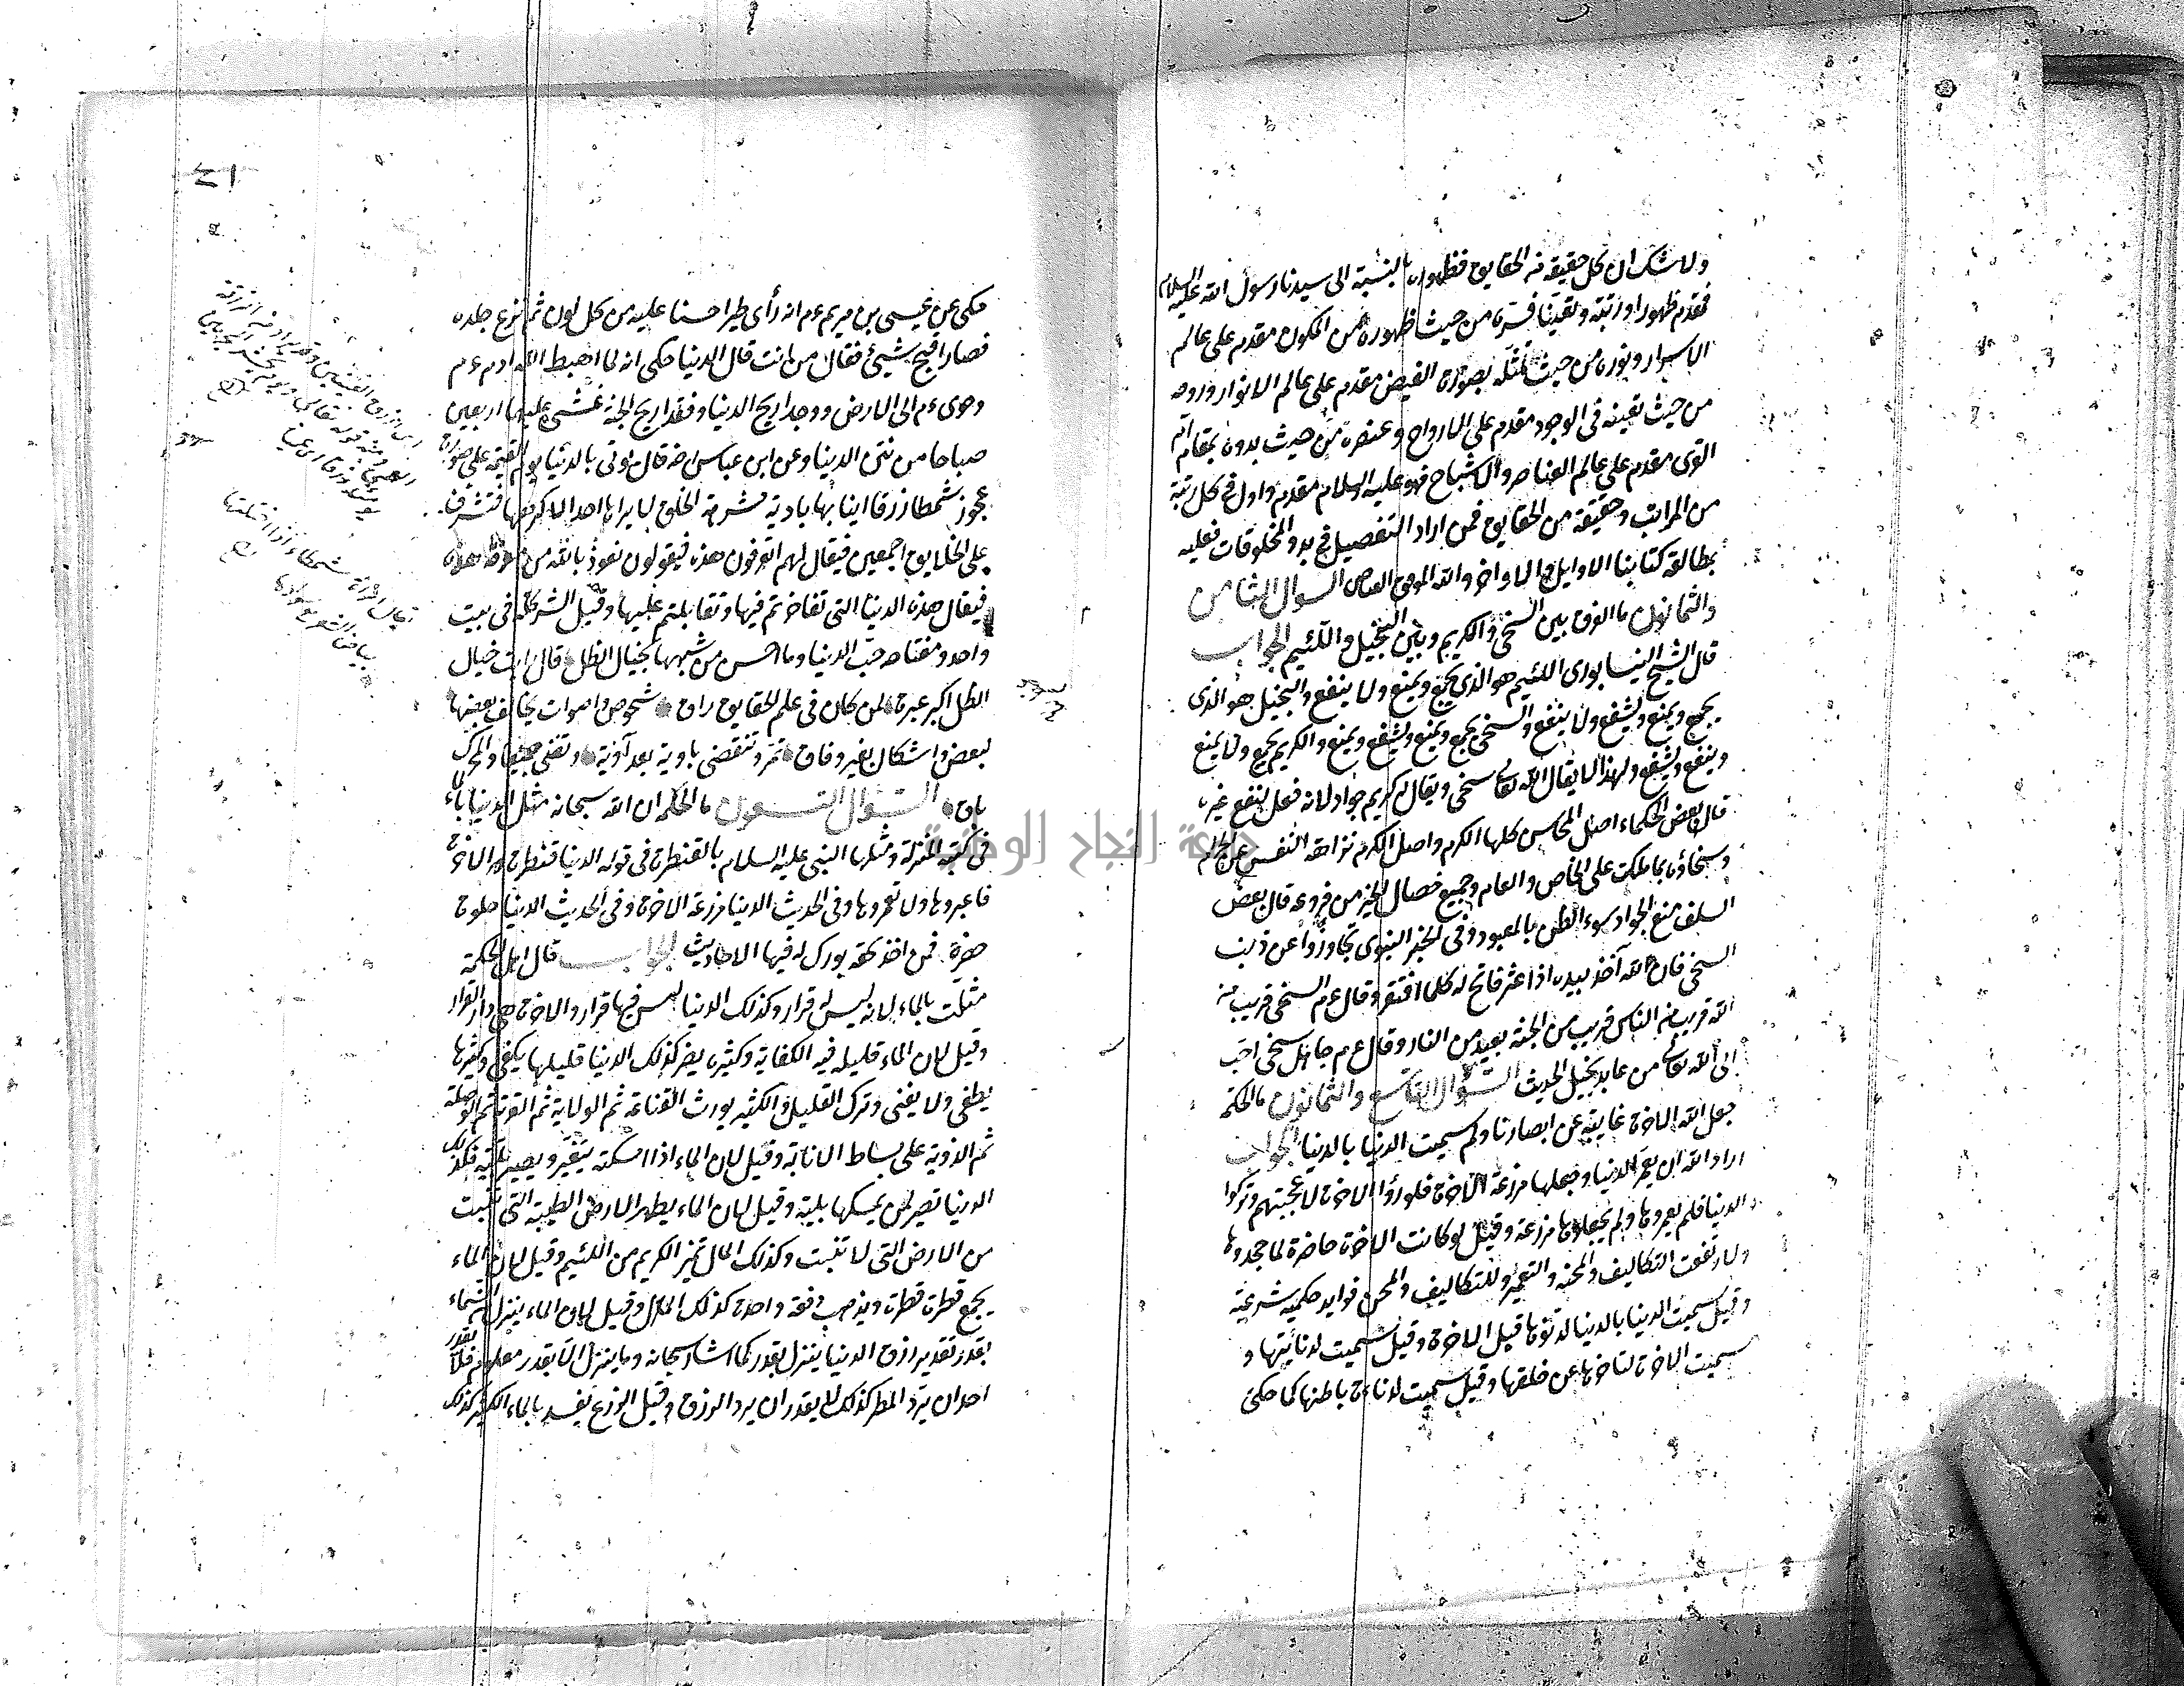 ولا شك ان لكل حقيقة من الحقايق فظهوره بالنسبة الى سيدنا رسول الله عليه السلام
فمقدم ظهورا ورتبة وتعينا فسره من حيث ظهوره من المكون مقدم على عالم
الاسرار ونوره من حيث تمثله بصورة الفيض مقدم على عالم الانوار وروحه
من حيث تعينه فى الوجود مقدم على الارواح وعنصره من حيث بدوه بمقام
القوى مقدم على عالم العناصر والاشباح فهو عليه السلام مقدم واول فى كل رتبة
من المراتب وحقيقة من الحقايق فمن اراد التفصيل فى بدو المخلوقات فعليه
بمطالعة كتابنا الاوايل والاواخر والله الموفق السوال الثامن
والثمانون ما الفرق بين السخى والكريم وبين البخيل واللئيم الجواب
قال الشيخ النيسابورى اللئيم هو الذى يجمع ويمنع ولا ينفع والبخيل هو الذى
يجمع ويمنع ويشفع ولا ينفع والسخى يجمع ويمنع ويشفع ويمنع والكريم يجمع ولا يمنع
وينفع ويشفع ولهذا لا يقال الله تعالى سخى ويقال له كريم جواد لانه فعل لينفع غيره
قال بعض الحكماء اصل المحاسن كلها الكرم واصل الكرم نزاهة النفس عن الحرام
وسخاؤه بما ملكت على الخاص والعام وجميع خصال الخير من فروعه قال بعض
السلف منع الجواد سوء الظن بالمعبود وفى الخبر النبوى تجاوزوا عن ذنب
السخى فان الله آخذ بيده اذا عثر فاتح له كلما افتقر وقال ءم السخى قريب من
الله قريب من الناس قريب من الجنة بعيد من النار وقال ءم جاهل سخى احب
الى الله تعالى من عابد بخيل الحديث السؤال التاسع والثمانون ما الحكمة
جعل الله الاخرة غايبة عن ابصارنا وكم سميت الدنيا بالدنيا الجواب
اراد الله ان يعمر الدنيا وجعلها مزرعة الاخرة فلو رأوا الاخرة لاعجبتهم وتركوا
الدنيا فلم يعمروها ولم يجعلوها مزرعة وقيل لو كانت الاخرة حاضرة لما جحدوها
ولارتفعت التكاليف والمحنة والتعمير وللتكاليف والمحن فوايد حكمية شرعية
وقيل سميت الدنيا بالدنيا لدنوها قبل الاخرة وقيل سميت لدنائيتها و
سميت الاخرة لتاخرها عن خلقها وقيل سميت لدناءة باطنها كما حكى
٤١
حكى عن عيسى بن مريم ءم انه رأى طيرا حسنا عليه من كل لون ثم نزع جلده
فصار اقبح شيئ فقال من انت قال الدنيا حكى انه لما اهبط الله ادم ءم
وحوى ءم الى الارض ووجدا ريح الدنيا وفقدا ريح الجنة غشى عليهما اربعين
صباحا من نتن الدنيا وعن ابن عباس رضه قال يؤتى بالدنيا يوم القيمة على صورة
عجوز شمطا زرقا انيابها بادية مشرمة الخلق لا يراها احد الا كرهها فتشرف
على الخلايق اجمعين فيقال لهم اتعرفون هذه فيقولون نعوذ بالله من معرفة هذه
فيقال هذه الدنيا التى تفاخرتم فيها وتقاتلتم عليها وقيل الشر كله فى بيت
واحد ومفتاحه حب الدنيا وما احسن من شبهها بخيال الظل قال رايت خيال
الظل اكبر عبرة لمن كان فى علم الحقايق راق شخوص واصوات يخالف بعضها
لبعض واشكال بغير وفاق تمر وتنقضى باوية بعد آونة وتفنى جميعا والمحرك
باق السؤال التسعون ما الحكمة ان الله سبحانه مثل الدنيا بالماء
فى كتبه المنزلة ومثلها النبى عليه السلام بالقنطرة فى قوله الدنيا قنطرة الاخرة
فاعبروها ولا تعمروها وفى الحديث الدنيا مزرعة الاخرة وفى الحديث الدنيا حلوة
خضرة فمن اخذ بحقه بورك له فيها الاحاديث الجواب قال اهل الحكمة
مثلت بالماء لانه ليس له قرار وكذلك الدنيا ليس فيها قرار والاخرة هى دار القرار
وقيل لان الماء قليله فيه الكفاية وكثيره يضر كذلك الدنيا قليلها يكفى وكثيرها
يطغى ولا يغنى وترك القليل والكثير يورث القناعة ثم الولاية ثم القربة ثم الوصلة
ثم الذوية على بساط الانابة وقيل لان الماء اذا امسكته يتغير ويصير بلية فكذلك
الدنيا تصير لمن يمسكها بلية وقيل لان الماء يطهر الارض الطيبة التى تنبت
من الارض التى لا تنبت وكذلك المال تميز الكريم من اللئيم وقيل لان الماء
يجمع قطرة قطرة ويذهب دفعة واحدة كذلك المال وقيل لان الماء ينزل من السماء
بقدر تقدير ارزق الدنيا ينزل بقدر كما اشار سبحانه وما ينزل الا بقدر معلوم فلا يقدر
احد ان يرد المطر كذلك لا يقدر ان يرد الرزق وقيل الزرع يفسد بالماء الكثير كذلك
يقال امرأة شمطاء اذا اختلط
بياض الشعر بسوادها
جامعة النجاح الوطنية